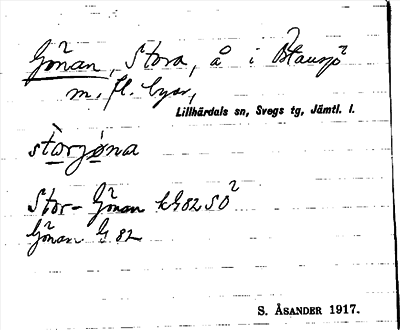 Gönan, Stora, å i
m. fl. byar,
Lillhärdals sn, Svegs tg, Jämtl. l.
stòrjøna
Stor-Gönan kG82SO
Gönan G 82
S. ÅSANDER 1917.